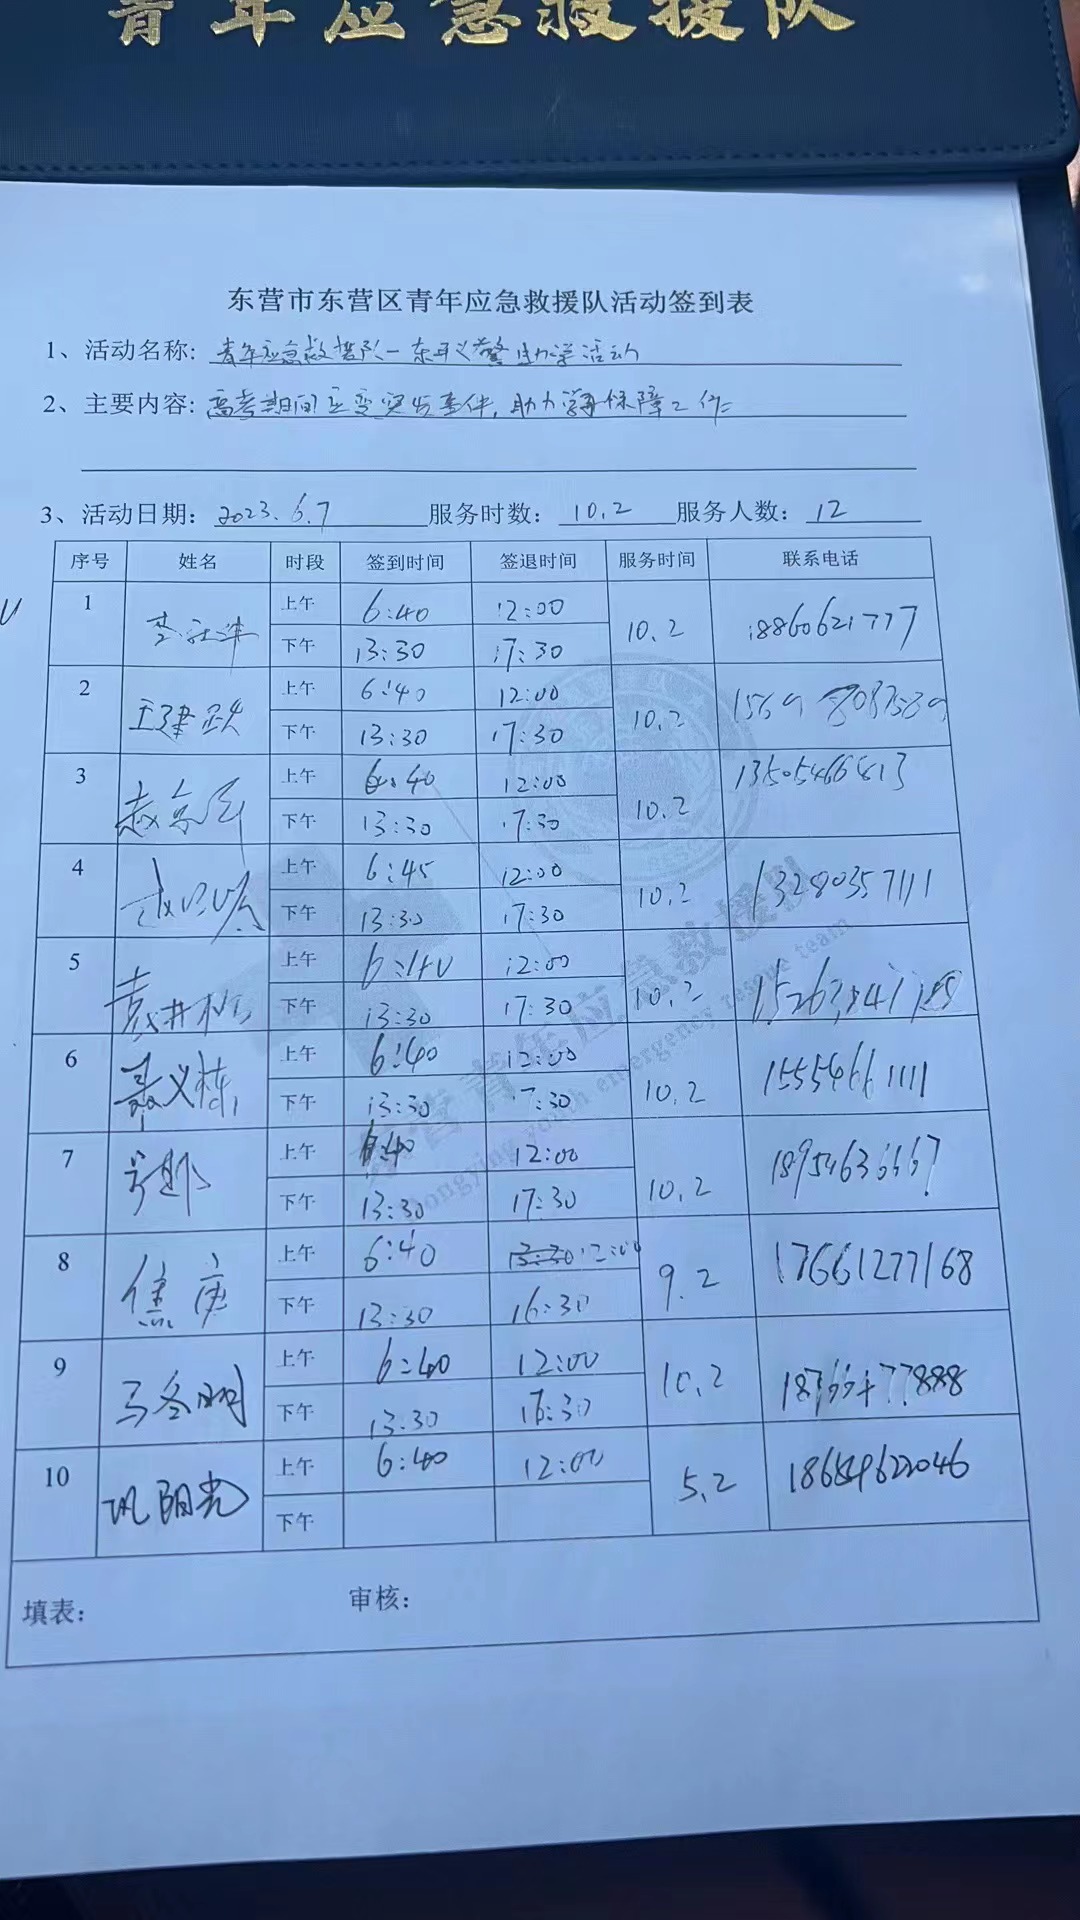 青年应急救援队
东营市东营区青年应急救援队活动签到表
1、活动名称: 青年应急救援队 助学活动
2、主要内容: 高考期间应变突发事件,助力 保障工作
3、活动日期: 2023.6.7 服务时数: 10.2 服务人数: 12
序号 姓名 时段 签到时间 签退时间 服务时间 联系电话
1 上午 6:40 12:00 10.2 18860621777
下午 13:30 17:30
2 王建跃 上午 6:40 12:00 10.2
下午 13:30 17:30
3 上午 6:40 12:00 10.2 13505466813
下午 13:30 17:30
4 上午 6:45 12:00 10.2 13280357111
下午 13:30 17:30
5 袁井松 上午 6:40 12:00 10.2
下午 13:30 17:30
6 聂义栋 上午 6:40 12:00 10.2 15554661111
下午 13:30 17:30
7 上午 6:40 12:00 10.2 18954636667
下午 13:30 17:30
8 焦庚 上午 6:40 12:00 9.2 17661277168
下午 13:30 16:30
9 马冬明 上午 6:40 12:00 10.2
下午 13:30 17:30
10 巩阳光 上午 6:40 12:00 5.2
下午
填表: 审核:
东营青年应急救援队
Dongying youth emergency rescue team